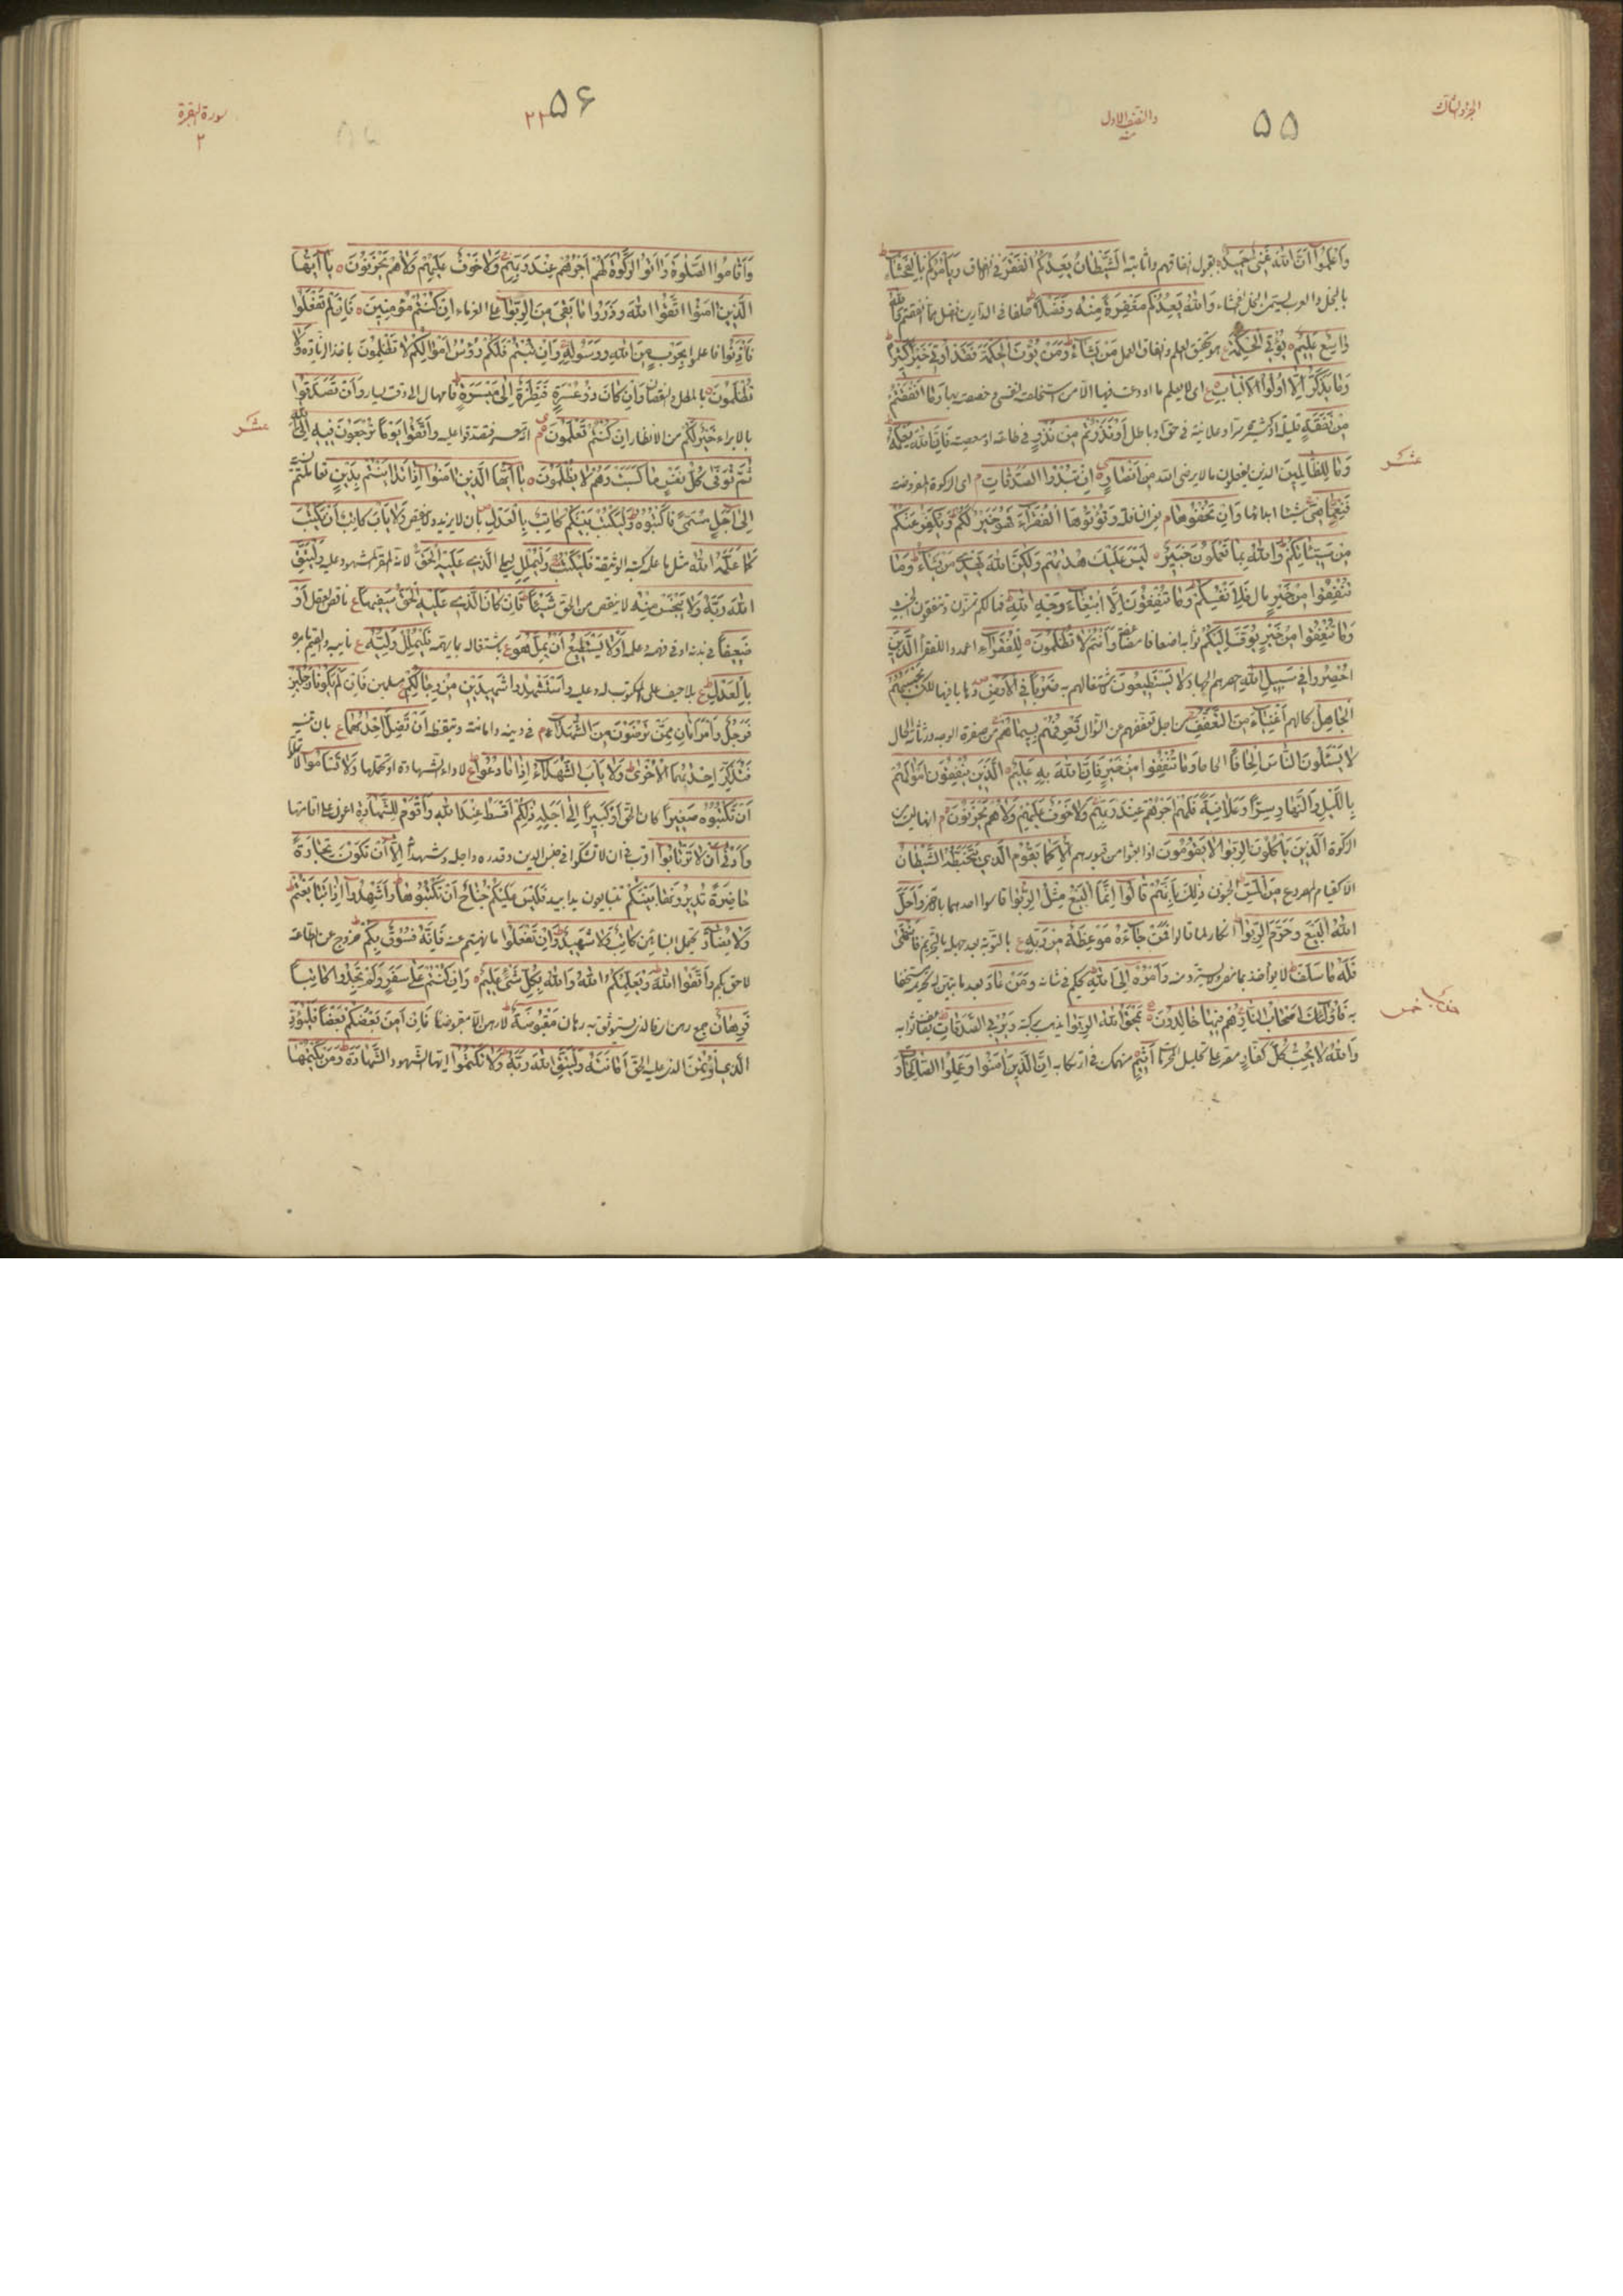 الجزو الثالث
۵۵
والنصف الاول
منه
وَاعْلَمُوا أَنَّ اللهَ غَنِيٌّ حَمِيدٌ بقبول انفاقهم واثابته الشَّيْطَانُ يَعِدُكُمُ الْفَقْرَ في الانفاق وَيَأْمُرُكُمْ بِالْفَحْشَاءِ
بالبخل والعرب يسمى البخل الفحشاء وَاللهُ يَعِدُكُمْ مَغْفِرَةً مِنْهُ وَفَضْلًا خلفا في الدارين افضل مما انفقتم وَاللهُ
وَاسِعٌ عَلِيمٌ يُؤْتِي الْحِكْمَةَ هو تحقيق العلم واتقان العمل مَنْ يَشَاءُ وَمَنْ يُؤْتَ الْحِكْمَةَ فَقَدْ أُوتِيَ خَيْرًا كَثِيرًا
وَمَا يَذَّكَّرُ إِلَّا أُولُوا الْأَلْبَابِ اى لا يعلم ما اودعت فيها الا من استخلصته لنفسى وخصصته بها وَمَا أَنْفَقْتُمْ
مِنْ نَفَقَةٍ قليلة او كثيرة سرا وعلانية في حق او باطل أَوْ نَذَرْتُمْ مِنْ نَذْرٍ في طاعة او معصية فَإِنَّ اللهَ يَعْلَمُهُ
عشر
وَمَا لِلظَّالِمِينَ الذين يفعلون ما لا يرضى الله مِنْ أَنْصَارٍ إِنْ تُبْدُوا الصَّدَقَاتِ اى الزكوة المفروضة
فَنِعِمَّا هِيَ شيئا ابداؤها وَإِنْ تُخْفُوهَا يعنى النافلة وَتُؤْتُوهَا الْفُقَرَاءَ فَهُوَ خَيْرٌ لَكُمْ وَيُكَفِّرُ عَنْكُمْ
مِنْ سَيِّئَاتِكُمْ وَاللهُ بِمَا تَعْمَلُونَ خَبِيرٌ لَيْسَ عَلَيْكَ هُدَاهُمْ وَلَكِنَّ اللهَ يَهْدِي مَنْ يَشَاءُ وَمَا
تُنْفِقُوا مِنْ خَيْرٍ مال فَلِأَنْفُسِكُمْ وَمَا تُنْفِقُونَ إِلَّا ابْتِغَاءَ وَجْهِ اللهِ فما لكم تمنون وتنفقون الخبيث
وَمَا تُنْفِقُوا مِنْ خَيْرٍ يُوَفَّ إِلَيْكُمْ ثوابه اضعافا مضاعفة وَأَنْتُمْ لَا تُظْلَمُونَ لِلْفُقَرَاءِ اعمدوا للفقراء الَّذِينَ
أُحْصِرُوا فِي سَبِيلِ اللهِ احصرهم الجهاد لَا يَسْتَطِيعُونَ لاشتغالهم به ضَرْبًا فِي الْأَرْضِ ذهابا فيها للكسب يَحْسَبُهُمُ
الْجَاهِلُ بحالهم أَغْنِيَاءَ مِنَ التَّعَفُّفِ من اجل تعففهم عن السؤال تَعْرِفُهُمْ بِسِيمَاهُمْ من صفرة الوجه ورثاثة الحال
لَا يَسْئَلُونَ النَّاسَ إِلْحَافًا الحاحا وَمَا تُنْفِقُوا مِنْ خَيْرٍ فَإِنَّ اللهَ بِهِ عَلِيمٌ الَّذِينَ يُنْفِقُونَ أَمْوَالَهُمْ
بِاللَّيْلِ وَالنَّهَارِ سِرًّا وَعَلَانِيَةً فَلَهُمْ أَجْرُهُمْ عِنْدَ رَبِّهِمْ وَلَا خَوْفٌ عَلَيْهِمْ وَلَا هُمْ يَحْزَنُونَ انها ليست من
الزكوة الَّذِينَ يَأْكُلُونَ الرِّبَوا لَا يَقُومُونَ اذا بعثوا من قبورهم إِلَّا كَمَا يَقُومُ الَّذِي يَتَخَبَّطُهُ الشَّيْطَانُ
الا كقيام المصروع مِنَ الْمَسِّ الجنون ذَلِكَ بِأَنَّهُمْ قَالُوا إِنَّمَا الْبَيْعُ مِثْلُ الرِّبَوا قاسوا احدهما بالاخر وَأَحَلَّ
اللهُ الْبَيْعَ وَحَرَّمَ الرِّبَوا انكار لما قالوا فَمَنْ جَاءَهُ مَوْعِظَةٌ مِنْ رَبِّهِ بالتوبة بعد جهله بالتحريم فَانْتَهَى
فَلَهُ مَا سَلَفَ لا يؤاخذ بما مضى ولا يسترد منه وَأَمْرُهُ إِلَى اللهِ يحكم في شانه وَمَنْ عَادَ بعد ما تبين له تحريمه مستخفا
به فَأُولَئِكَ أَصْحَابُ النَّارِ هُمْ فِيهَا خَالِدُونَ يَمْحَقُ اللهُ الرِّبَوا يذهب ببركته وَيُرْبِي الصَّدَقَاتِ يضاعف ثوابه
خمس
وَاللهُ لَا يُحِبُّ كُلَّ كَفَّارٍ مصر على تحليل المحرمات أَثِيمٍ منهمك في ارتكابه إِنَّ الَّذِينَ آمَنُوا وَعَمِلُوا الصَّالِحَاتِ
۵۶
۲۲
سورة البقرة
۲
وَأَقَامُوا الصَّلَوةَ وَآتَوُا الزَّكَوةَ لَهُمْ أَجْرُهُمْ عِنْدَ رَبِّهِمْ وَلَا خَوْفٌ عَلَيْهِمْ وَلَا هُمْ يَحْزَنُونَ يَا أَيُّهَا
الَّذِينَ آمَنُوا اتَّقُوا اللهَ وَذَرُوا مَا بَقِيَ مِنَ الرِّبَوا على الغرماء إِنْ كُنْتُمْ مُؤْمِنِينَ فَإِنْ لَمْ تَفْعَلُوا
فَأْذَنُوا فاعلموا بِحَرْبٍ مِنَ اللهِ وَرَسُولِهِ وَإِنْ تُبْتُمْ فَلَكُمْ رُؤُسُ أَمْوَالِكُمْ لَا تَظْلِمُونَ باخذ الزيادة وَلَا
تُظْلَمُونَ بالمطل والنقصان وَإِنْ كَانَ ذُو عُسْرَةٍ فَنَظِرَةٌ إِلَى مَيْسَرَةٍ فامهال الى وقت يسار وَأَنْ تَصَدَّقُوا
عشر
بالابراء خَيْرٌ لَكُمْ من الانظار إِنْ كُنْتُمْ تَعْلَمُونَ انه معسر فتصدقوا عليه وَاتَّقُوا يَوْمًا تُرْجَعُونَ فِيهِ إِلَى اللهِ
ثُمَّ تُوَفَّى كُلُّ نَفْسٍ مَا كَسَبَتْ وَهُمْ لَا يُظْلَمُونَ يَا أَيُّهَا الَّذِينَ آمَنُوا إِذَا تَدَايَنْتُمْ بِدَيْنٍ تعاملتم
إِلَى أَجَلٍ مُسَمًّى فَاكْتُبُوهُ وَلْيَكْتُبْ بَيْنَكُمْ كَاتِبٌ بِالْعَدْلِ بان لا يزيد ولا ينقص وَلَا يَأْبَ كَاتِبٌ أَنْ يَكْتُبَ
كَمَا عَلَّمَهُ اللهُ مثل ما علمه كتبة الوثيقة فَلْيَكْتُبْ وَلْيُمْلِلِ الَّذِي عَلَيْهِ الْحَقُّ لانه المقر المشهود عليه وَلْيَتَّقِ
اللهَ رَبَّهُ وَلَا يَبْخَسْ مِنْهُ لا ينقص من الحق شَيْئًا فَإِنْ كَانَ الَّذِي عَلَيْهِ الْحَقُّ سَفِيهًا ناقص العقل أَوْ
ضَعِيفًا في بدنه او في فهمه وعلمه أَوْ لَا يَسْتَطِيعُ أَنْ يُمِلَّ هُوَ لاشتغاله بما يهمه فَلْيُمْلِلْ وَلِيُّهُ نايبه والقيم بامره
بِالْعَدْلِ بلا حيف على المكتوب له وعليه وَاسْتَشْهِدُوا شَهِيدَيْنِ مِنْ رِجَالِكُمْ مسلمين فَإِنْ لَمْ يَكُونَا رَجُلَيْنِ
فَرَجُلٌ وَامْرَأَتَانِ مِمَّنْ تَرْضَوْنَ مِنَ الشُّهَدَاءِ في دينه وامانته وتيقظه أَنْ تَضِلَّ إِحْدَاهُمَا بان تنسيه
فَتُذَكِّرَ إِحْدَاهُمَا الْأُخْرَى وَلَا يَأْبَ الشُّهَدَاءُ إِذَا مَا دُعُوا لاداء الشهادة او تحملها وَلَا تَسْأَمُوا
أَنْ تَكْتُبُوهُ صَغِيرًا كان الحق أَوْ كَبِيرًا إِلَى أَجَلِهِ ذَلِكُمْ أَقْسَطُ عِنْدَ اللهِ وَأَقْوَمُ لِلشَّهَادَةِ اعون على اقامتها
وَأَدْنَى أَنْ لَا تَرْتَابُوا اقرب في ان لا تشكوا في جنس الدين وقدره واجله وشهوده إِلَّا أَنْ تَكُونَ تِجَارَةً
حَاضِرَةً تُدِيرُونَهَا بَيْنَكُمْ تتبايعون يدا بيد فَلَيْسَ عَلَيْكُمْ جُنَاحٌ أَنْ لَا تَكْتُبُوهَا وَأَشْهِدُوا إِذَا تَبَايَعْتُمْ
وَلَا يُضَارَّ كَاتِبٌ وَلَا شَهِيدٌ وَإِنْ تَفْعَلُوا ما نهيتم عنه فَإِنَّهُ فُسُوقٌ بِكُمْ خروج عن الطاعة
لاحق بكم وَاتَّقُوا اللهَ وَيُعَلِّمُكُمُ اللهُ وَاللهُ بِكُلِّ شَيْءٍ عَلِيمٌ وَإِنْ كُنْتُمْ عَلَى سَفَرٍ وَلَمْ تَجِدُوا كَاتِبًا
فَرِهَانٌ جمع رهن فالذى يستوثق به رهان مَقْبُوضَةٌ لا رهن الا مقبوضا فَإِنْ أَمِنَ بَعْضُكُمْ بَعْضًا فَلْيُؤَدِّ
الَّذِي اؤْتُمِنَ الذى عليه الحق أَمَانَتَهُ وَلْيَتَّقِ اللهَ رَبَّهُ وَلَا تَكْتُمُوا ايها الشهود الشَّهَادَةَ وَمَنْ يَكْتُمْهَا